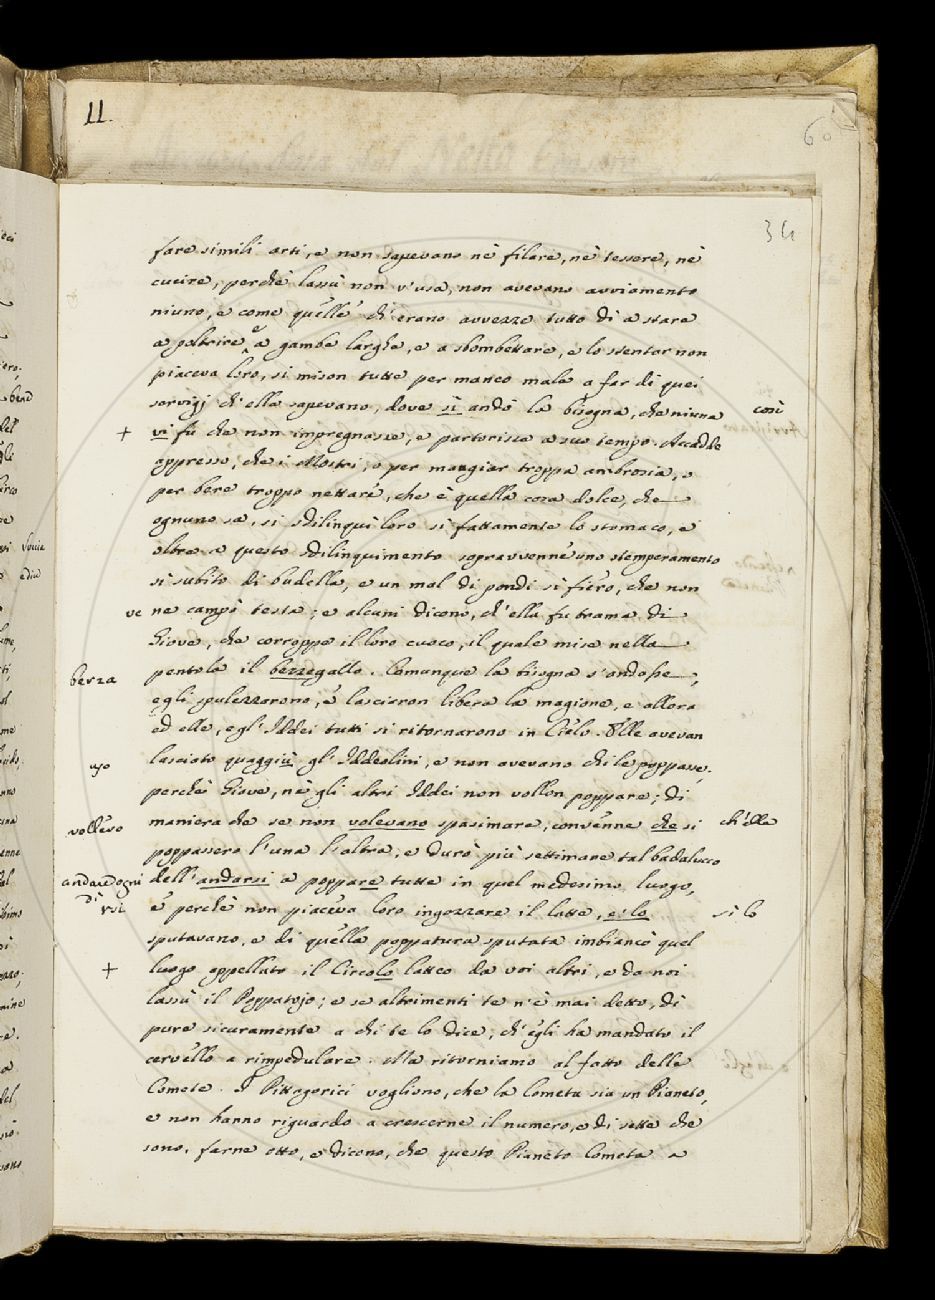 11.
60
34
fare simili arti, e non sapevano nè filare, nè tessere, nè
cucire, perchè lassù non v'usa, non avevano avviamento
niuno, e come quelle ch'erano avvezze tutto dì a stare
a poltrire, a gambe larghe, e a sbombettare, e lo stentar non
piaceva loro, si mison tutte per manco male a far di quei
servigj ch'ella sapevano, dove sì andò la bisogna, che niuna così
+ vi fu che non impregnasse, e partorisse a suo tempo. Accadde
appresso, che i Mostri, o per mangiar troppa ambrosia, o
per bere troppo nettare, che è quella cosa dolce, che
ognuno sa, si sdilinquì loro sì fattamente lo stomaco, e
oltre a questo sdilinquimento sopravvenne uno stemperamento
sì subito di budella, e un mal di pondi sì fiero, che non
ve ne campò testa; e alcuni dicono, ch'ella fu trama di
Giove, che corroppe il loro cuoco, il quale mise nella
berza pentola il bezzegallo. Comunque la bisogna s'andasse,
egli spulezzarono, e lasciaron libera la magione, e allora
ed elle, e gl'Iddei tutti si ritornarono in Cielo. Elle avevan
lasciato quaggiù gl'Iddeolini, e non avevano chi le poppasse,
perchè Giove, nè gli altri Iddei non vollon poppare; di
maniera che se non volevano spasimare, convenne che si ch'elle
poppassero l'una l'altra, e durò più settimane tal badalucco
andare ogni dell'andarsi a poppare tutte in quel medesimo luogo,
dì
e perchè non piaceva loro ingozzare il latte, e' lo si lo
sputavano, e di quella poppatura sputata imbiancò quel
+ luogo appellato il Circolo latteo da voi altri, e da noi
lassù il Poppatojo; e se altrimenti te n'è mai detto, dì
pure sicuramente a chi te lo dice, ch'egli ha mandato il
cervello a rimpedulare. Ma ritorniamo al fatto delle
Comete. I Pittagorici vogliono, che la Cometa sia un Pianeto,
e non hanno riguardo a crescerne il numero, e di sette che
sono, farne otto, e dicono, che questo Pianeto Cometa a